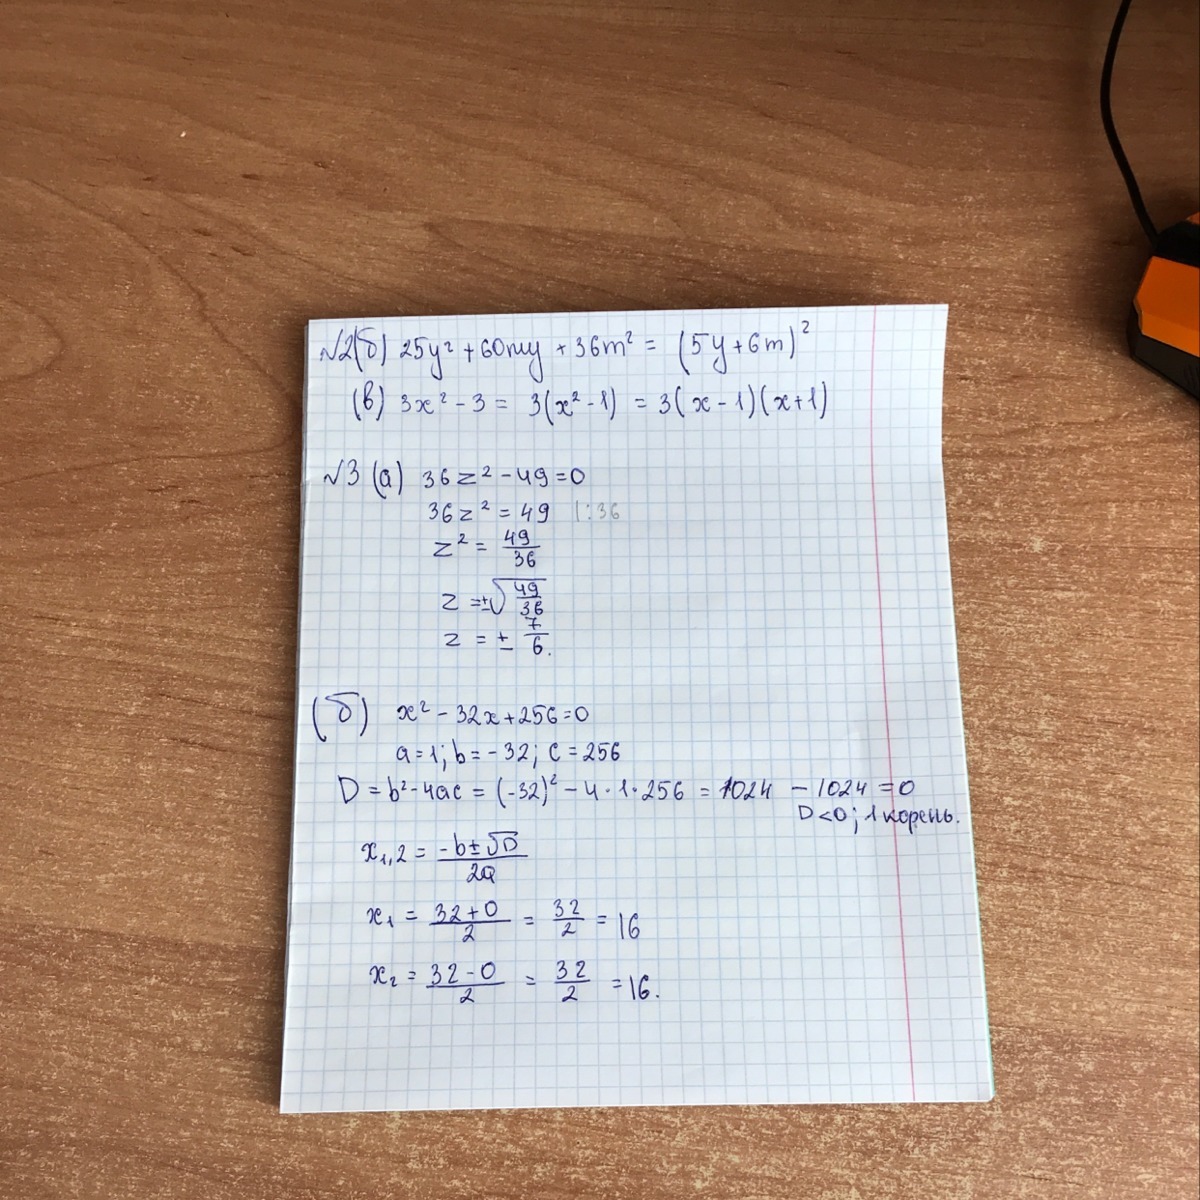 №2(б) 25y² + 60my + 36m² = (5y + 6m)²
(в) 3x² - 3 = 3(x² - 1) = 3(x - 1)(x + 1)
№3 (а) 36z² - 49 = 0
36z² = 49 |:36
z² = 49/36
z = ±√(49/36)
z = ± 7/6.
(б) x² - 32x + 256 = 0
a = 1; b = -32; c = 256
D = b² - 4ac = (-32)² - 4 · 1 · 256 = 1024 - 1024 = 0
D < 0; 1 корень.
x₁,₂ = (-b ± √D)/2a
x₁ = (32 + 0)/2 = 32/2 = 16
x₂ = (32 - 0)/2 = 32/2 = 16.